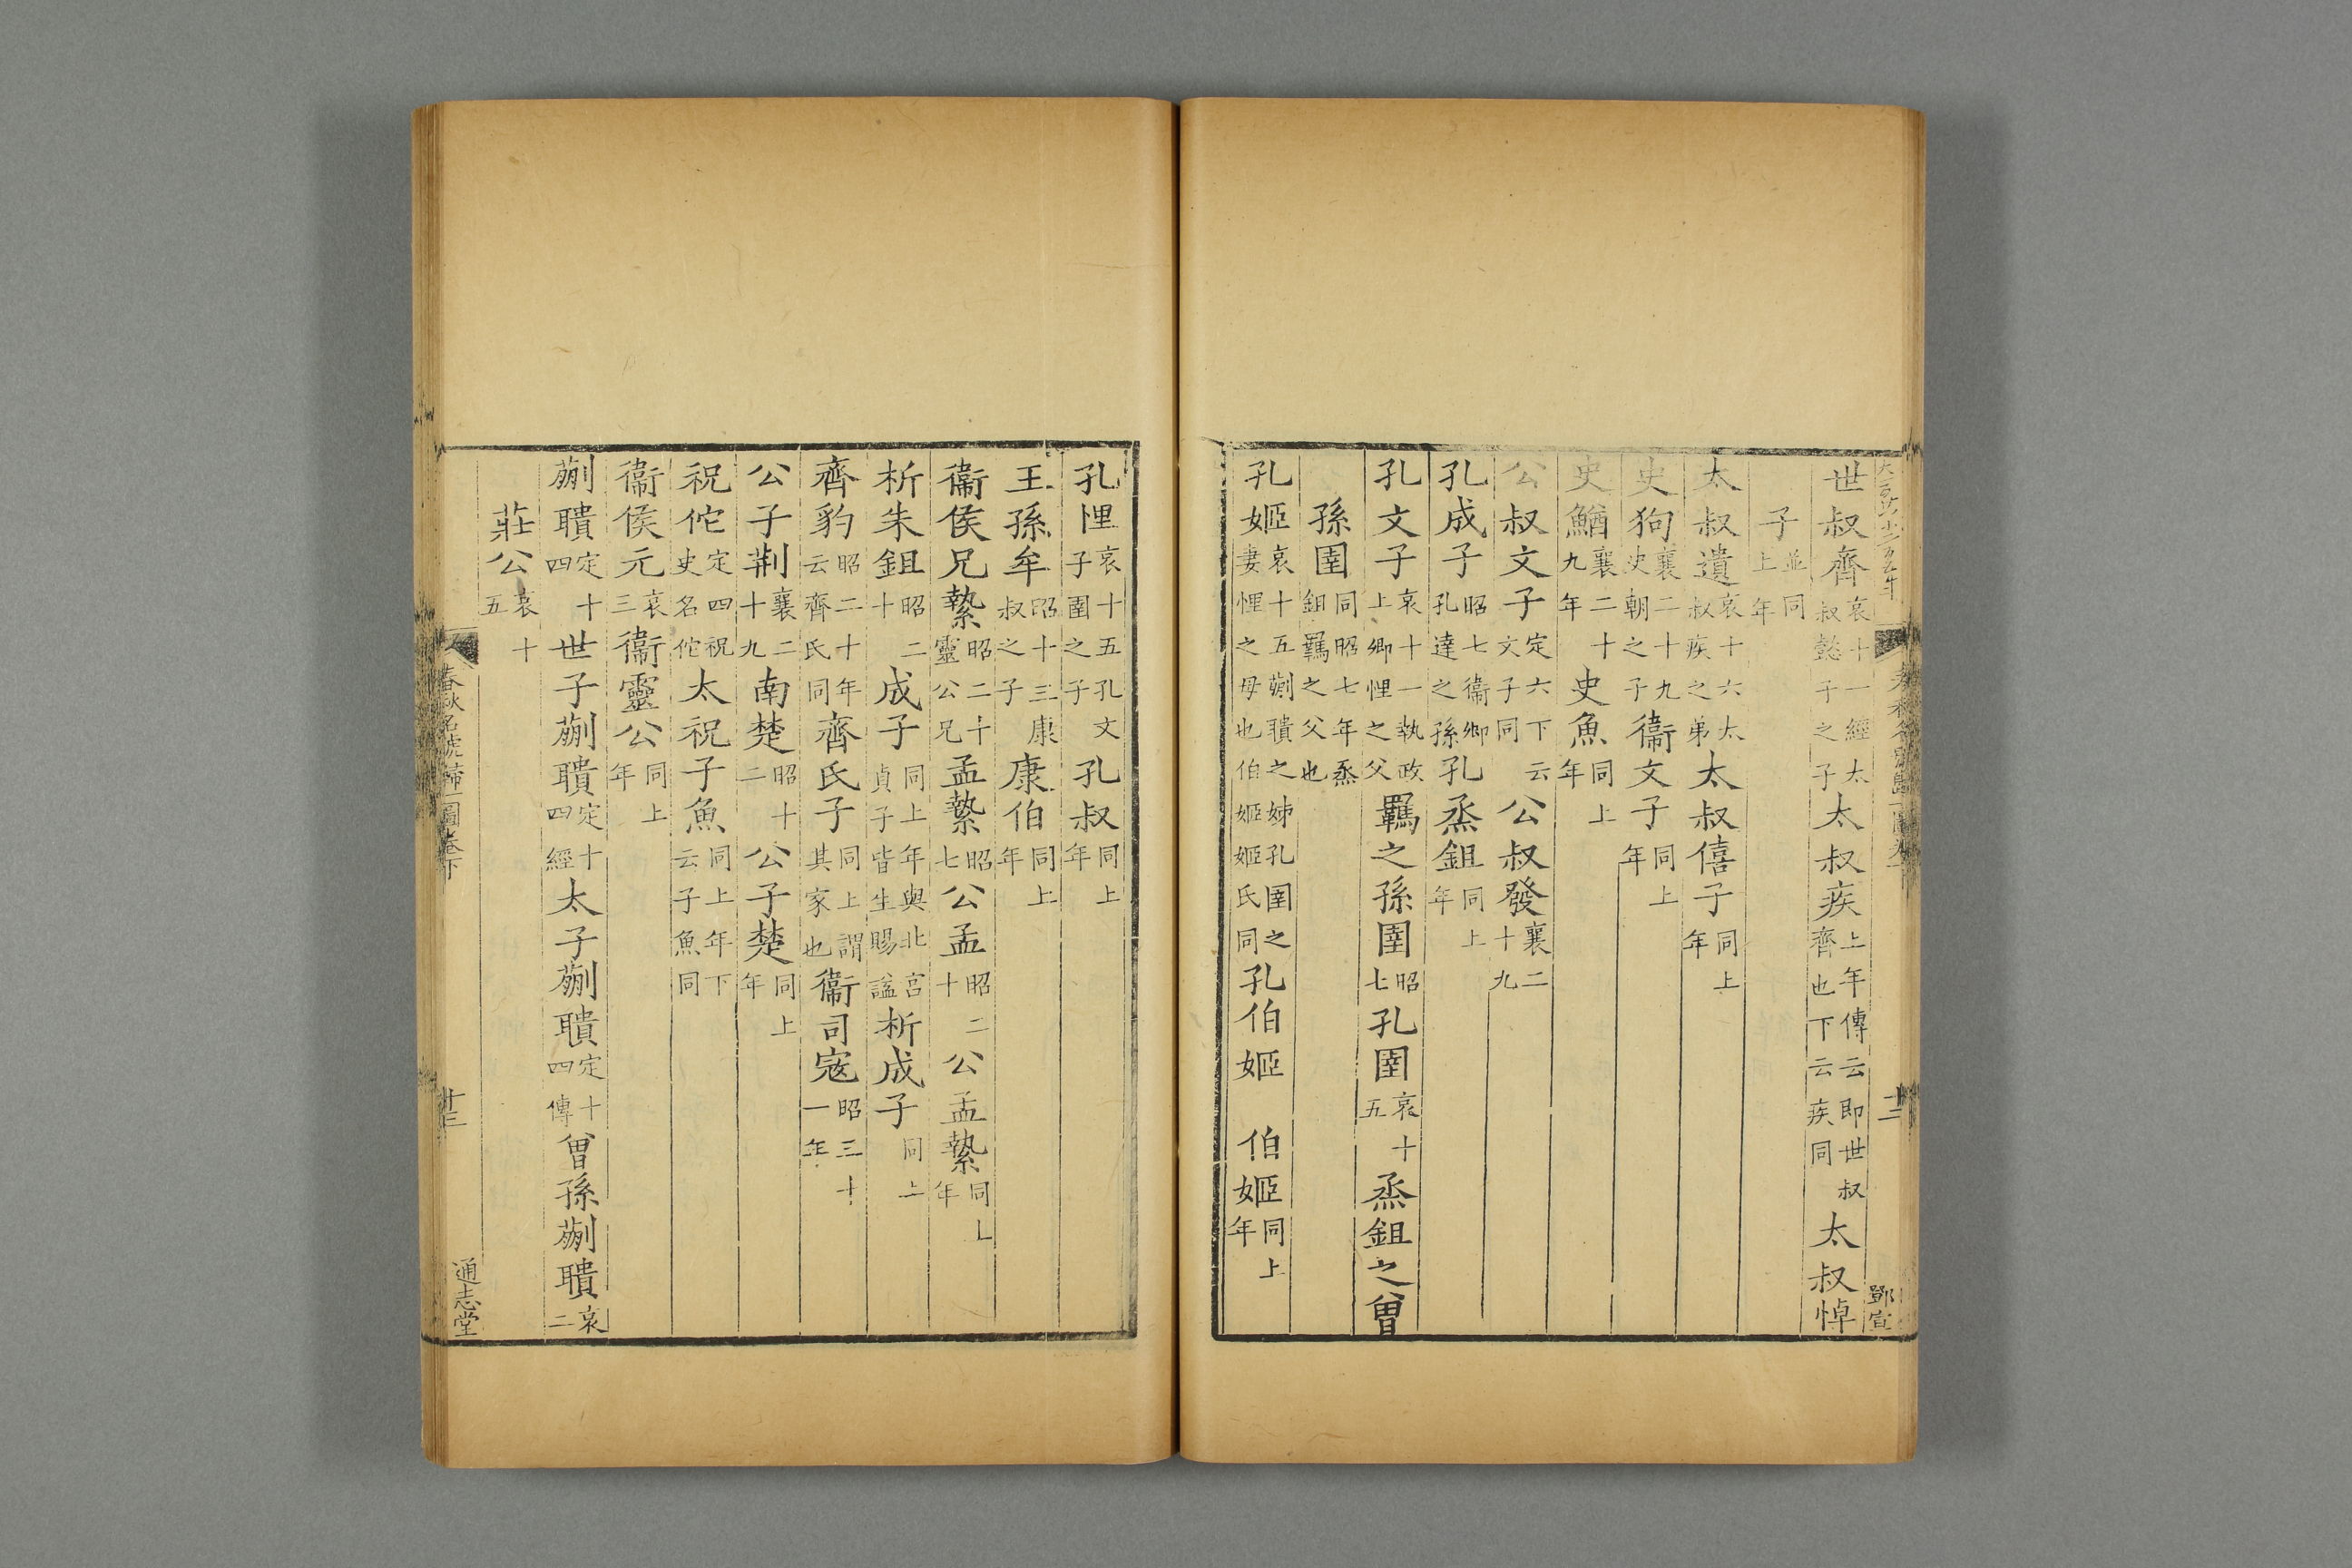 世叔齊哀十一經太叔懿子之子太叔疾上年傳云即世叔齊也下云疾同太叔悼
子並同上年
太叔遺哀十六太叔疾之弟太叔僖子同上年
史狗襄二十九史朝之子衞文子同上年
史鰌襄二十九年史魚同上年
公叔文子定六下云文子同公叔發襄二十九
孔成子昭七衞卿孔達之孫孔烝鉏同上年
孔文子哀十一執政上卿悝之父羈之孫圉昭七孔圉哀十五烝鉏之曾
孫圉同昭七年烝鉏羈之父也
孔姬哀十五蒯聵之姊孔圉之妻悝之母也伯姬姬氏同孔伯姬 伯姬同上年
鄧宣
十二
孔悝哀十五孔文子圉之子孔叔同上年
王孫牟昭十三康叔之子康伯同上年
衞侯兄縶昭二十靈公兄孟縶昭七公孟昭二十公孟縶同上年
析朱鉏昭二十成子同上年與北宮貞子皆生賜謚析成子同上
齊豹昭二十年云齊氏同齊氏子同上謂其家也衞司寇昭三十一年
公子荆襄二十九南楚昭十二公子楚同上年
祝佗定四祝史名佗太祝子魚同上年下云子魚同
衞侯元哀三衞靈公同上年
蒯聵定十四世子蒯聵定十四經太子蒯聵定十四傳曾孫蒯聵哀二
莊公哀十五
春秋名號歸一圖卷下
十三
通志堂